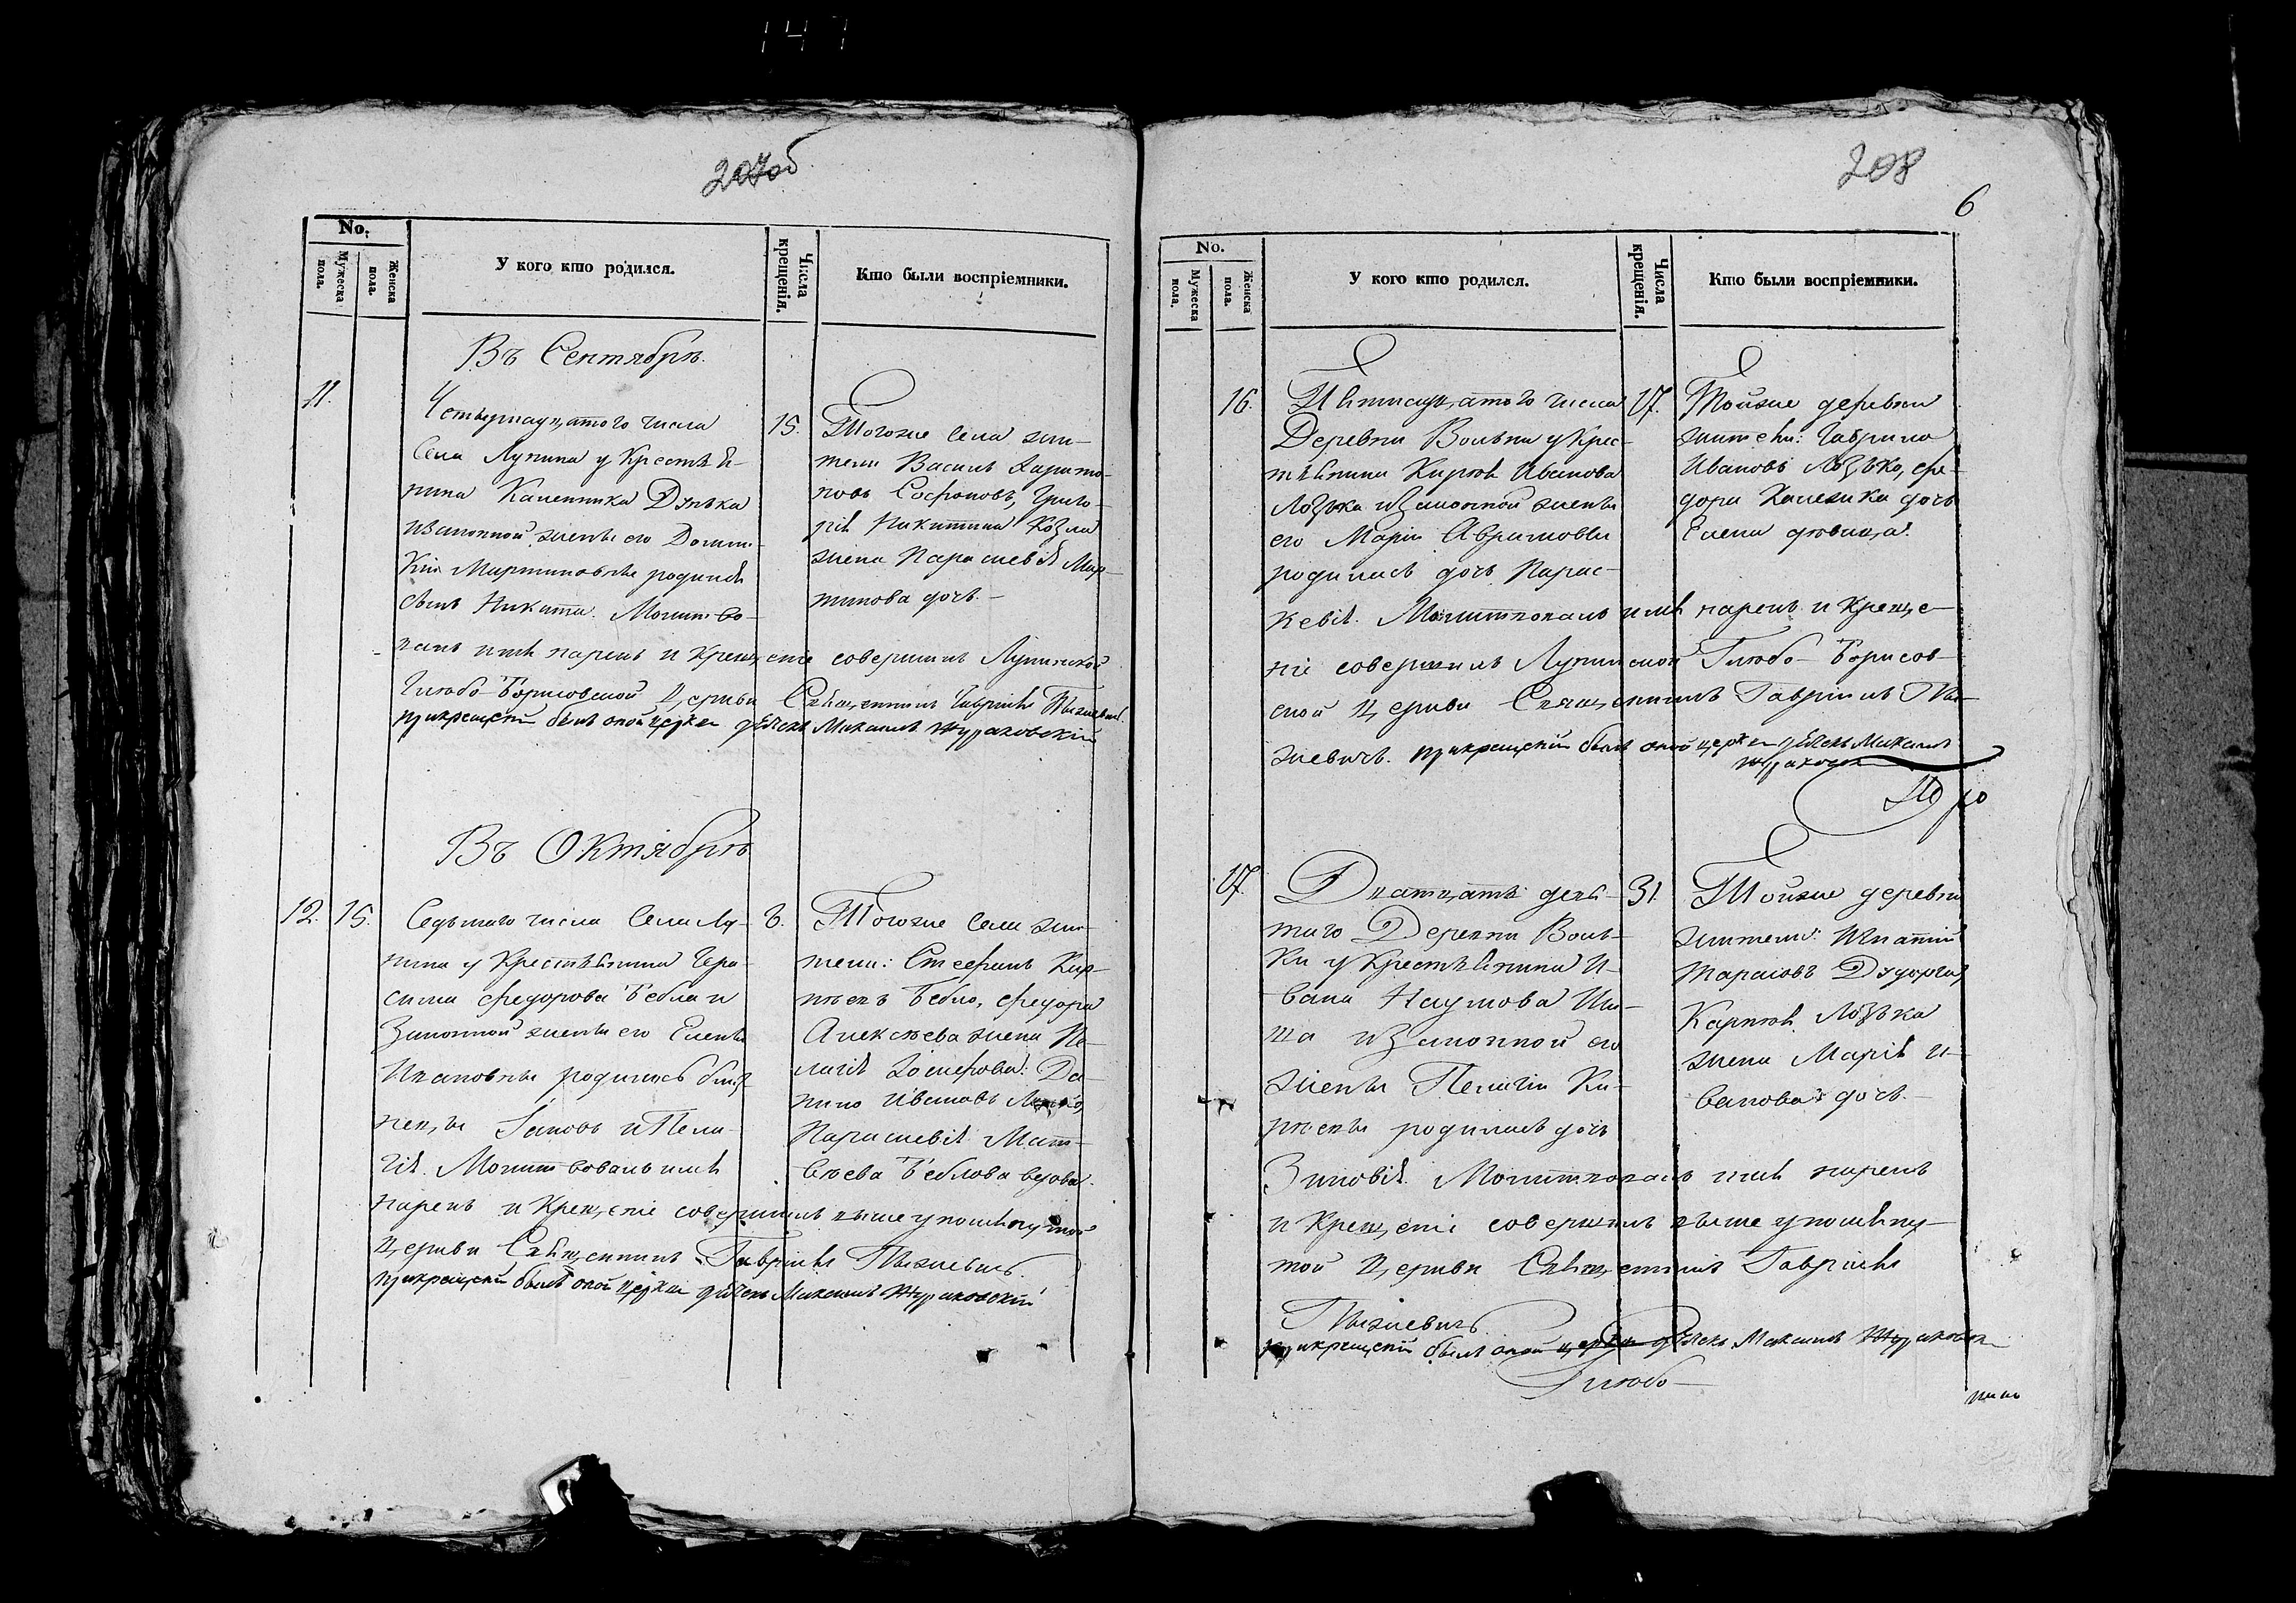 147
207об
No.
Мужеска пола.
Женска пола.
У кого кто родился.
Числа крещенія.
Кто были воспріемники.
Въ Сентябрѣ.
11.
Четырнадцатого числа
Села Лунина у Крестья-
нина
иЗаконной жены его
Мартиновны родился
сынъ Никита. Молитво-
валъ имя нарекъ и Крещеніе совершилъ Лунинской
Глѣбо-Борисовской Церкви Священникъ Гавріилъ
прикрещеніи былъ оной церкви дьячекъ Михаилъ Жураковскій
15.
Тогоже Села жи-
тели Василь Харито-
новъ Софроновъ, Григо-
рія Никитина Козла
жена Параскевія Мар-
тинова дочь.
Въ Октябрѣ
12.
15.
Седьмаго числа Села Лу-
нина у Крестьянина Гера-
сима Федорова Бебла и
Законной жены его Елены
Ивановны родились близ-
нецы Іаковъ и Пела-
гія. Молитвовалъ имя
нарекъ и Крещеніе совершилъ вышеупомянутой
Церкви Священникъ Гавріилъ
прикрещеніи былъ оной церкви дьячекъ Михаилъ Жураковскій
8.
Тогоже Села жи-
тели: Стефанъ Кор-
нѣевъ Бебло, Федора
Алексѣева жена Пе-
лагія Іосифова: Да-
нило Ивановъ
Параскевія Мат-
вѣева Беблова вдова.
208
6
No.
Мужеска пола.
Женска пола.
У кого кто родился.
Числа крещенія.
Кто были воспріемники.
16.
Пятнадцатого числа
Деревни Вольки у Крес-
тьянина Карпа Иванова
Лозька иЗаконной жены
его Маріи
родилась дочь Парас-
кевія. Молитвовалъ имя нарекъ и Креще-
ніе совершилъ Лунинской Глѣбо-Борисов-
ской Церкви Священникъ Гавріилъ
прикрещеніи былъ оной церкви дьячекъ Михаилъ
17.
Тойже деревни
жители: Гаврило
Ивановъ Лозько, Фе-
дора дочь
Елена дѣвица.
17.
Тридцать
Деревни Воль-
ки у Крестьянина И-
вана Наумова
иЗаконной его
жены Пелагіи
родилась дочь
Зиновія. Молитвовалъ имя нарекъ
и Крещеніе совершилъ вышеупомяну-
той Церкви Священникъ Гавріилъ
прикрещеніи былъ оной церкви дьячекъ Михаилъ
Глѣбо-
31.
Тойже деревни
жители: Игнатій
Тарасовъ
Карпа Лозька
жена Марія И-
ванова дочь.